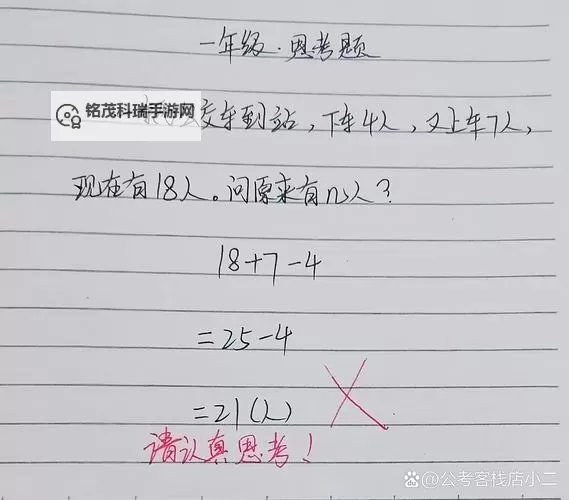 一年级·思考题
铭茂科瑞手游网
交车到站,下车4人,又上车7人,
现在有18人。问原来有几人?
18+7-4
=25-4
=21(人)
请认真思考!
@公考客栈店小二